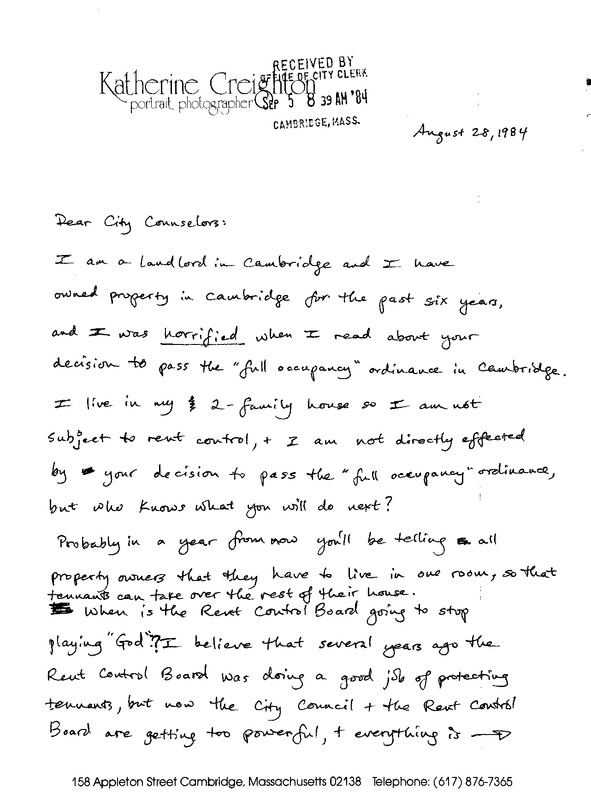 Katherine Creighton
portrait photographer
RECEIVED BY
OFFICE OF CITY CLERK
SEP 5 8 39 AM '84
CAMBRIDGE, MASS.
August 28, 1984
Dear City Counselors:
I am a landlord in Cambridge and I have
owned property in Cambridge for the past six years,
and I was horrified when I read about your
decision to pass the "full occupancy" ordinance in Cambridge.
I live in my 2-family house so I am not
subject to rent control, + I am not directly effected
by your decision to pass the "full occupancy" ordinance,
but who knows what you will do next?
Probably in a year from now you'll be telling all
property owners that they have to live in one room, so that
tennants can take over the rest of their house.
When is the Rent Control Board going to stop
playing "God"? I believe that several years ago the
Rent Control Board was doing a good job of protecting
tennants, but now the City Council + the Rent Control
Board are getting too powerful, + everything is →
158 Appleton Street Cambridge, Massachusetts 02138 Telephone: (617) 876-7365